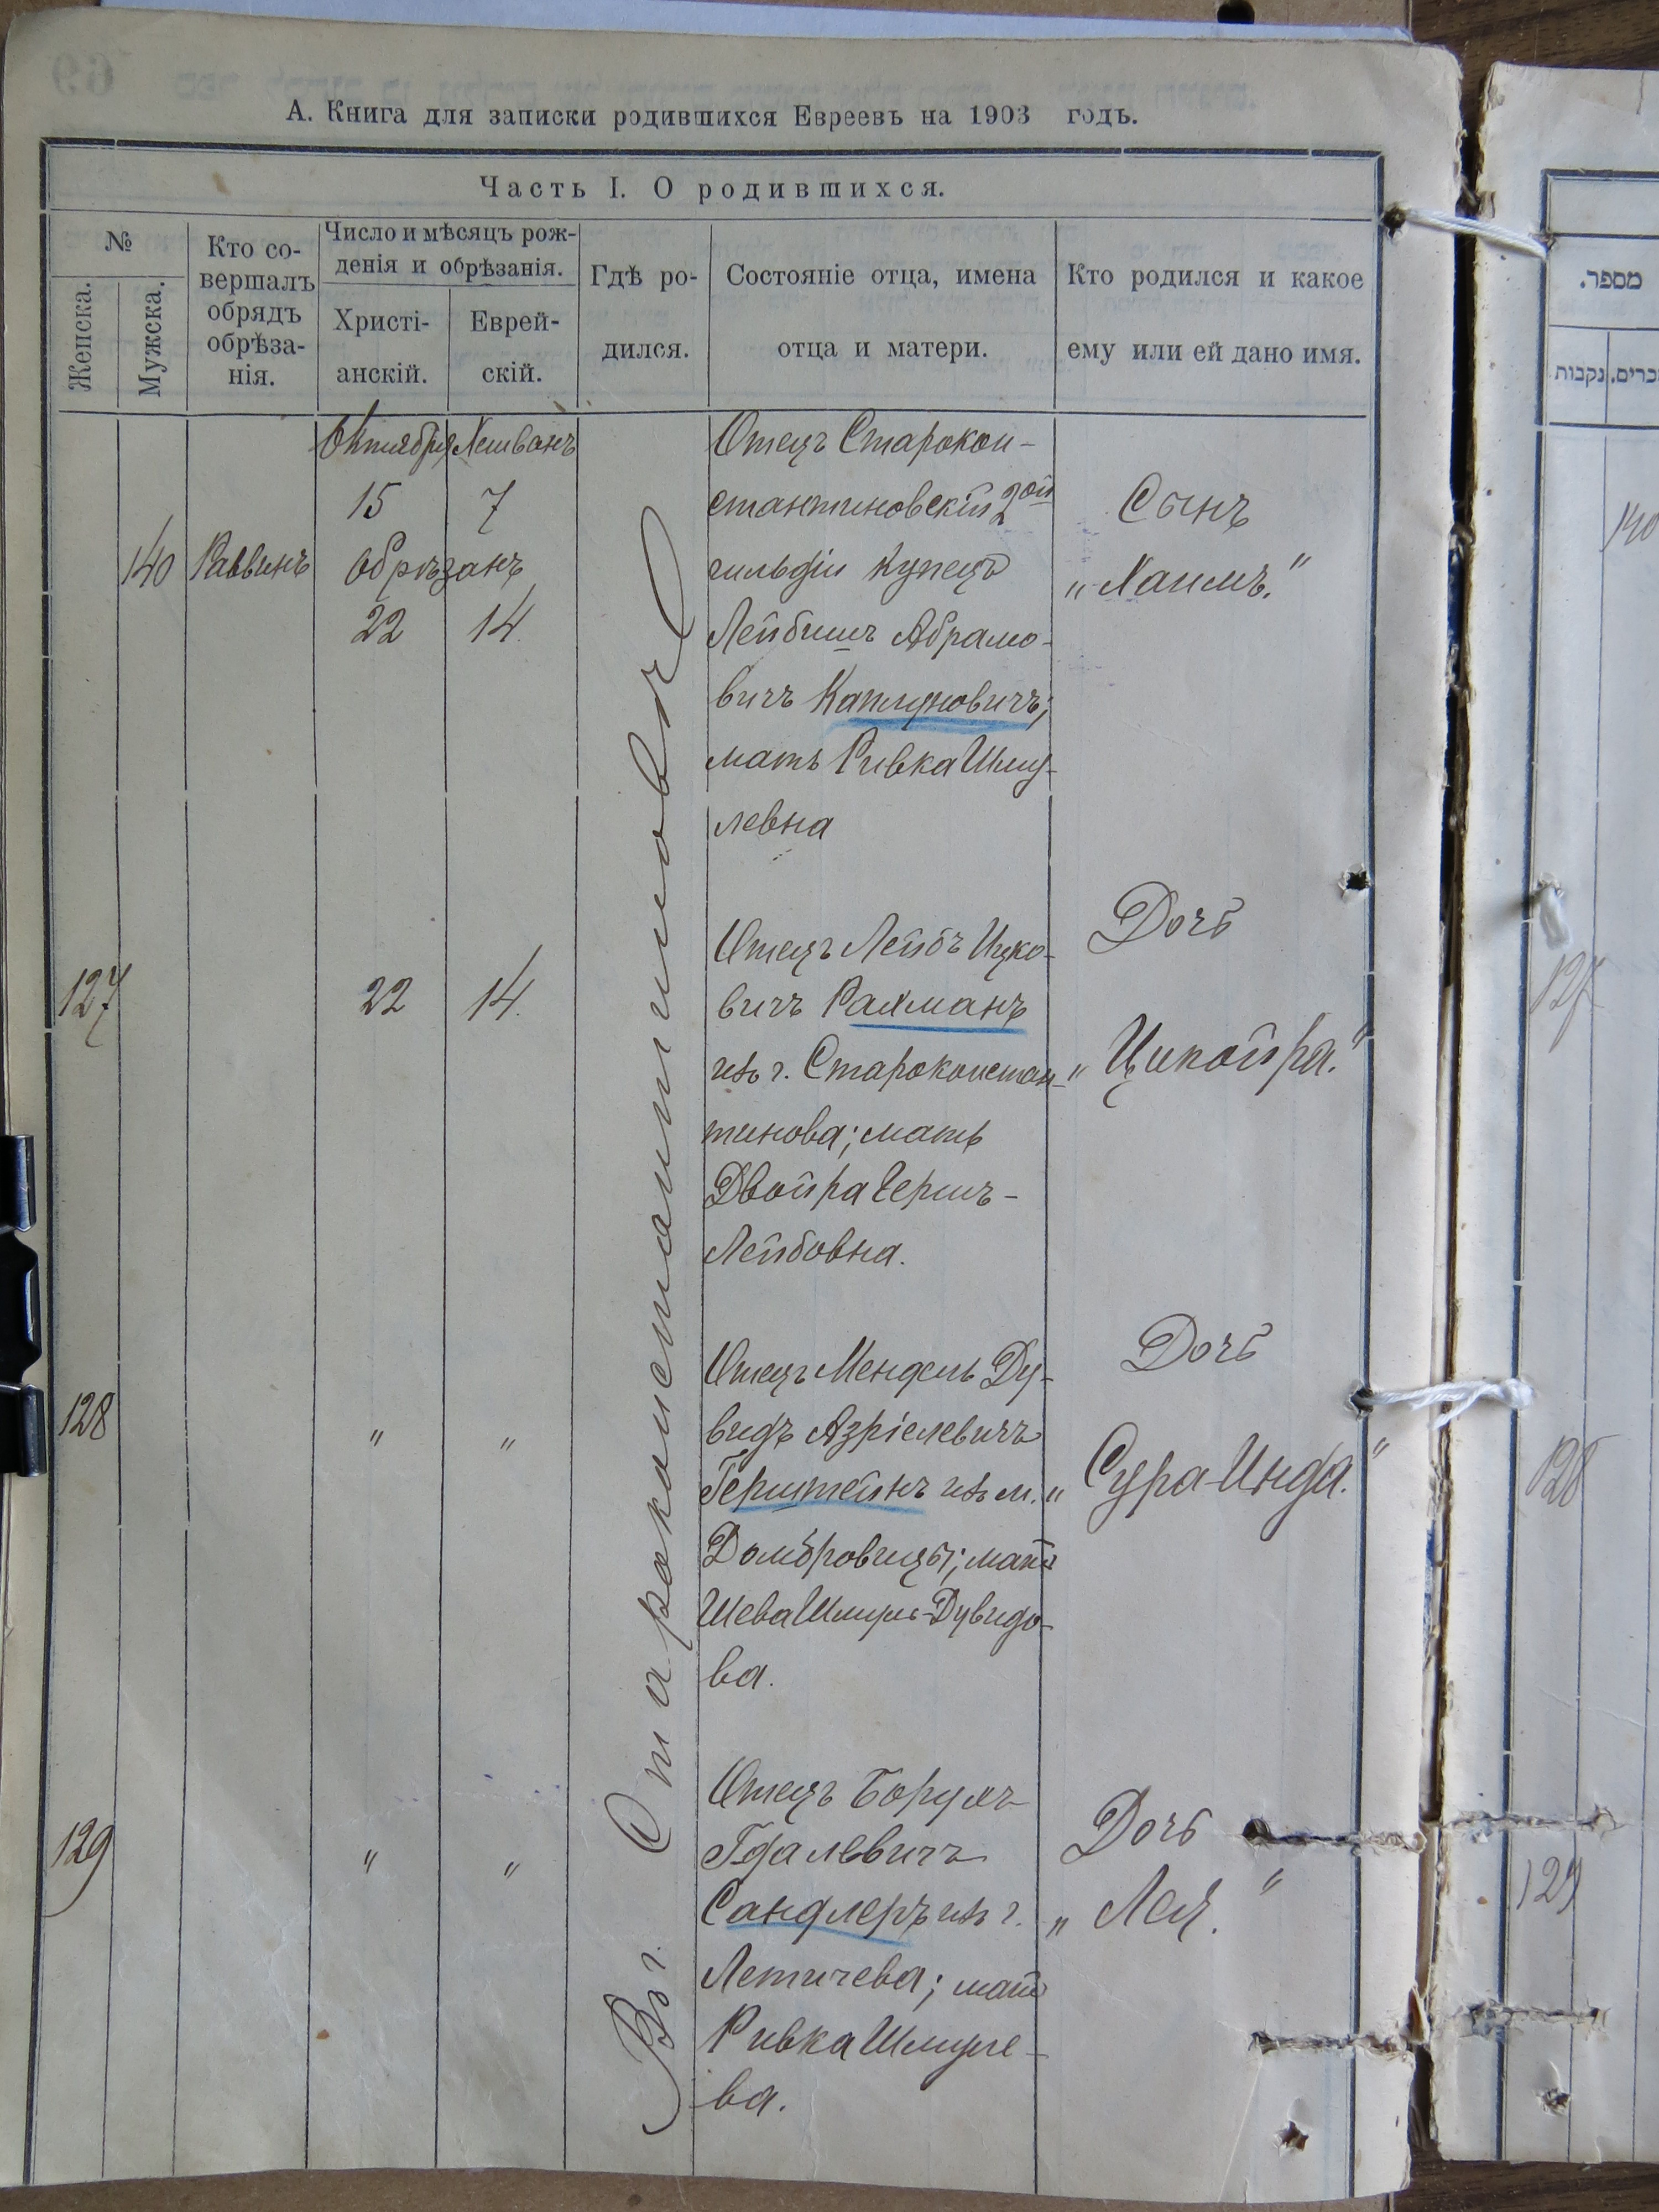 А. Книга для записки родившихся Евреевъ на 1903 годъ.
Часть I. О родившихся.
№
Женска.
Мужска.
Кто со-
вершалъ
обрядъ
обрѣза-
нія.
Число и мѣсяцъ рож-
денія и обрѣзанія.
Христі-
анскій.
Еврей-
скій.
Гдѣ ро-
дился.
Состояніе отца, имена
отца и матери.
Кто родился и какое
ему или ей дано имя.
Октября Хешванъ
15 7
140 Раввинъ обрѣзанъ
22 14.
Отецъ Старокон-
стантиновскій 2ой
гильдіи купецъ
Лейбишъ Абрамо-
вичъ Каплуновичъ;
мать Ривка Шму-
левна
Сынъ
„Хаимъ."
Въ г. Староконстантиновѣ
127 22 14.
Отецъ Лейбъ Ицко-
вичъ Рахманъ
изъ г. Староконстан-
тинова; мать
Двойра Гершъ-
Лейбовна.
Дочь
„Ципойра."
128 " "
Отецъ Мендель Ду-
видъ Азріелевичъ
Герштейнъ изъ м.
Домбровицы; мать
Шева Шмуль-Дувидо-
ва.
Дочь
„Сура-Инда."
129 " "
Отецъ Борухъ
Гдалевичъ
Сандлеръ изъ г.
Летичева; мать
Ривка Шмуле-
ва.
Дочь
„Лея."
מספר.
נקבות
זכרים.
140
127
128
129